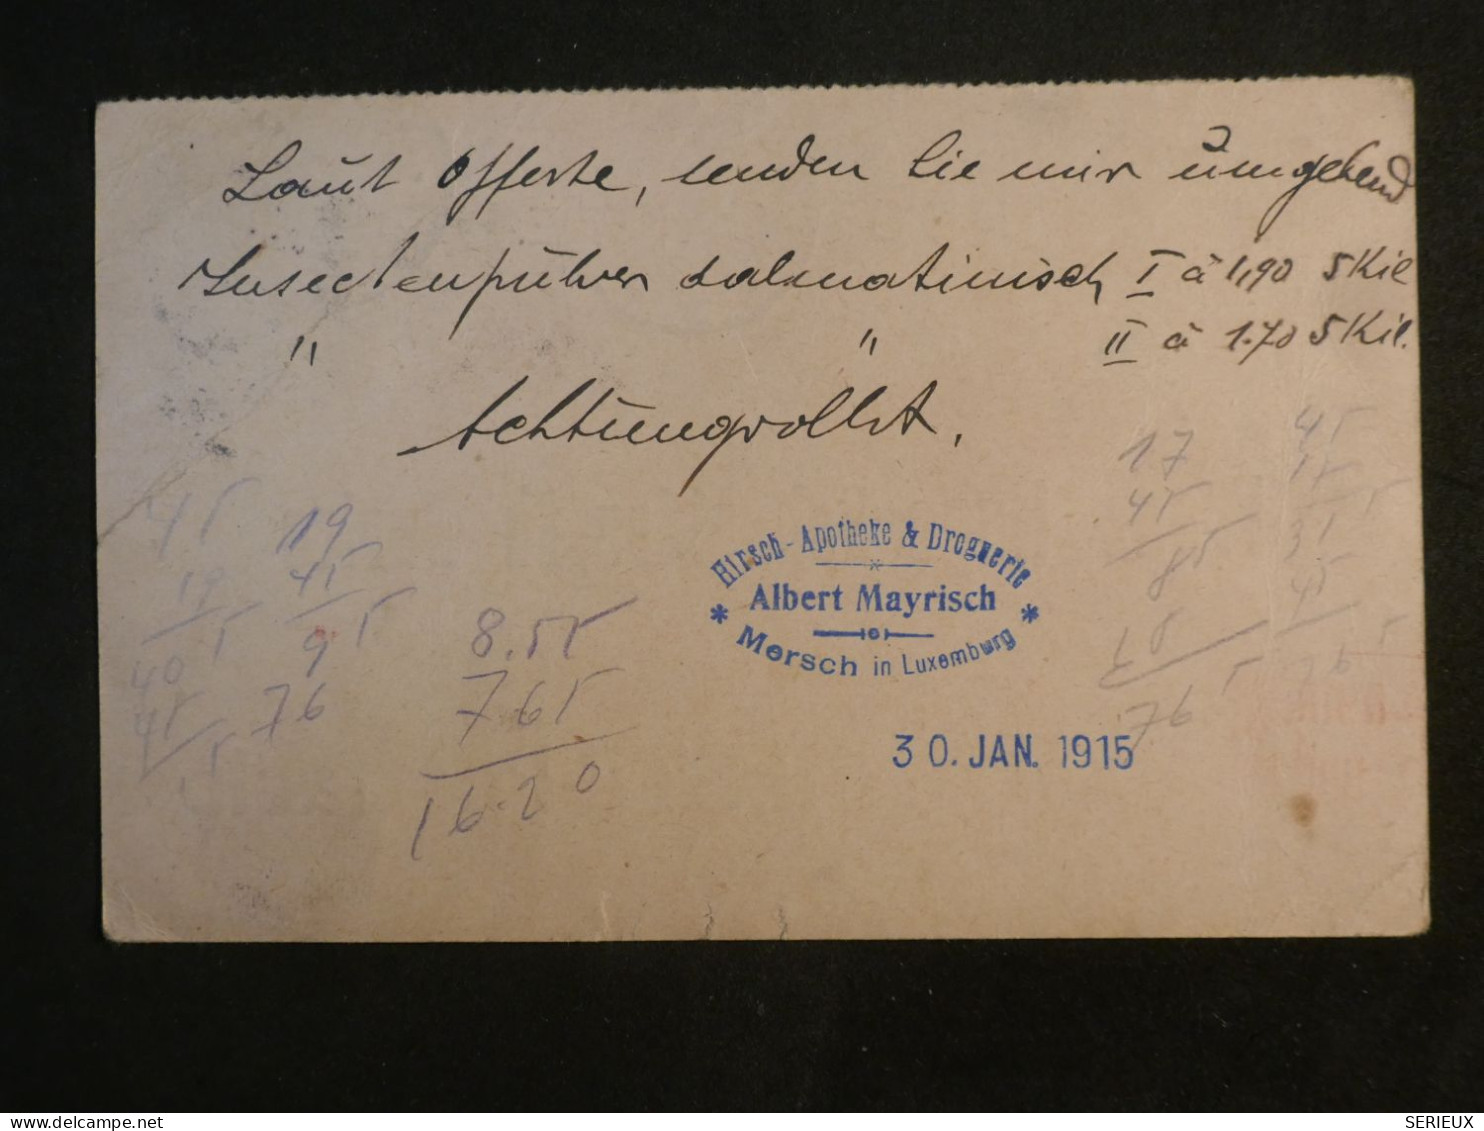 Laut Offerte, senden Sie mir umgehend
Insectenpulver dalmatinisch I à 1,90 5 Kil
" " II à 1.70 5 Kil.
Achtungsvollst.
Hirsch-Apotheke & Droguerie
Albert Mayrisch
* Mersch in Luxemburg *
30. JAN. 1915
17
45
85
76 5
45
19
45
19
45
9 5
76
8.55
765
16.20
delcampe.net
SERIEUX